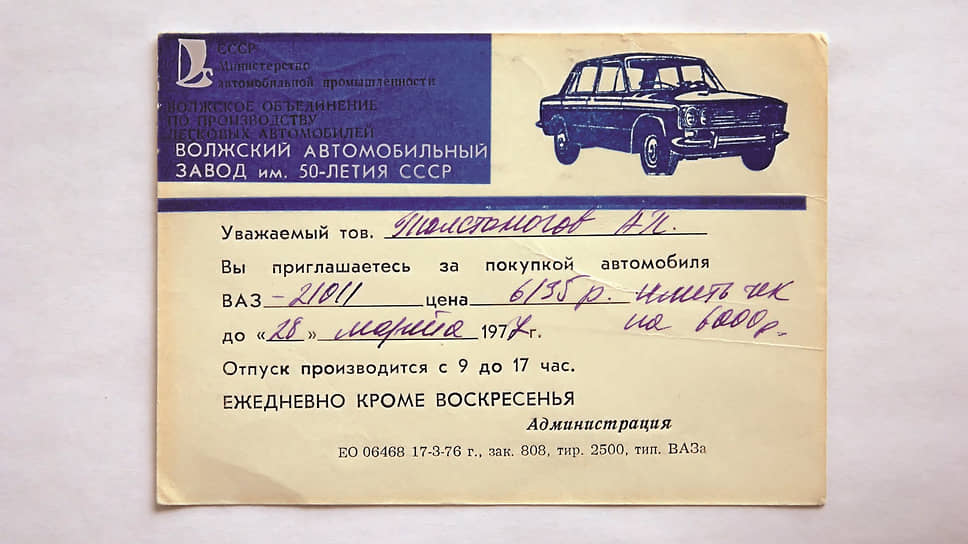 СССР
Министерство
автомобильной промышленности
ВОЛЖСКОЕ ОБЪЕДИНЕНИЕ
ПО ПРОИЗВОДСТВУ
ЛЕГКОВЫХ АВТОМОБИЛЕЙ
ВОЛЖСКИЙ АВТОМОБИЛЬНЫЙ
ЗАВОД им. 50-ЛЕТИЯ СССР
Уважаемый тов. Толстоногов А.П.
Вы приглашаетесь за покупкой автомобиля
ВАЗ -21011 цена 6135 р. иметь чек
до «28» марта 1977г. на 6000р.
Отпуск производится с 9 до 17 час.
ЕЖЕДНЕВНО КРОМЕ ВОСКРЕСЕНЬЯ
Администрация
ЕО 06468 17-3-76 г., зак. 808, тир. 2500, тип. ВАЗа